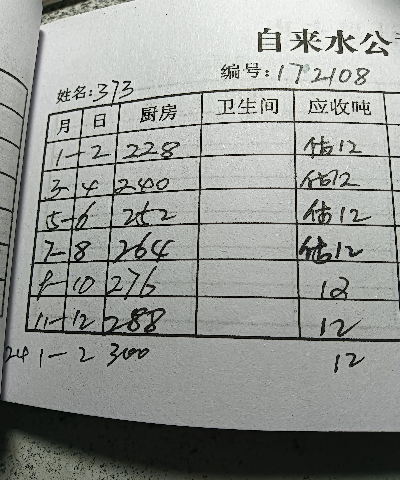 自来水公
编号:172108
姓名:373
月 日 厨房 卫生间 应收吨
1-2 228 估12
3-4 240 估12
5-6 252 估12
7-8 264 估12
9-10 276 12
11-12 288 12
24 1-2 300 12